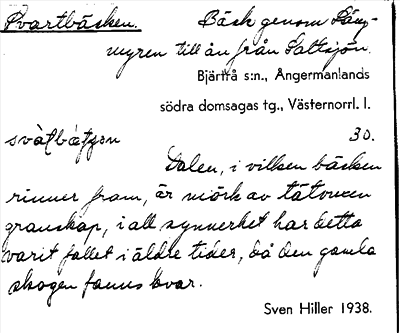 Svartbäcken. Bäck genom Lång-
myren till ån från Saltsjön.
Bjärtrå s:n., Ångermanlands
södra domsagas tg., Västernorrl. l.
30.
Dalen, i vilken bäcken
rinner fram, är mörk av tätvuxen
granskog, i all synnerhet har detta
varit fallet i äldre tider, då den gamla
skogen fanns kvar.
Sven Hiller 1938.